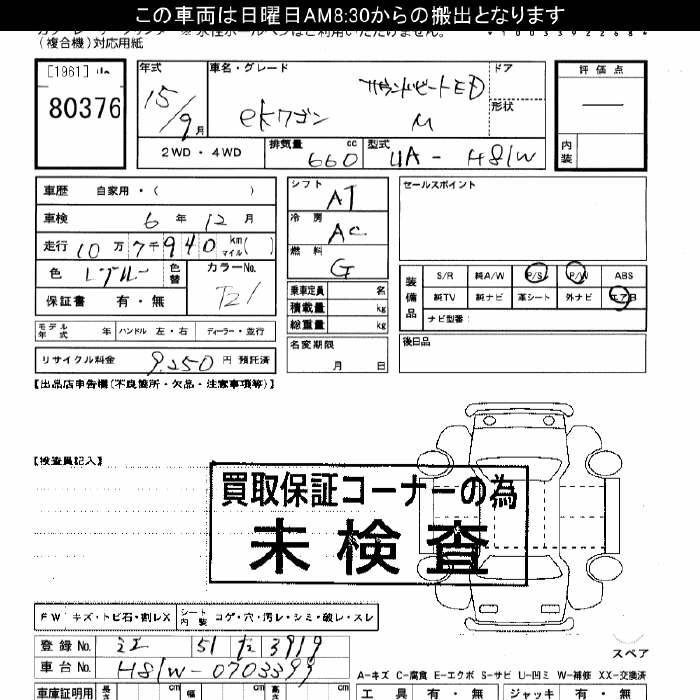 この車両は日曜日AM8:30からの搬出となります
(複合機)対応用紙
[1961]
80376
年式
15/9月
車名・グレード
サウンドビートED
ekワゴン M
ドア
形状
評価点
内装
2WD・4WD
排気量 660 cc
型式 UA-H81W
車歴 自家用・( )
車検 6年12月
走行 10万7千940 km マイル( )
色
色替
カラーNo.
T21
保証書 有・無
モデル年式 年 ハンドル 左・右 ディーラー・並行
リサイクル料金 9,250 円 預託済
シフト AT
冷房 AC
燃料 G
乗車定員 名
積載量 kg
総重量 kg
名変期限
月 日
セールスポイント
装備品
S/R 純A/W P/S P/W ABS
純TV 純ナビ 革シート 外ナビ エアB
ナビ型番:
後日品
【出品店申告欄(不良箇所・欠品・注意事項等)】
【検査員記入】
買取保証コーナーの為
未検査
FW キズ・トビ石・割レX
シート内装 コゲ・穴・汚レ・シミ・破レ・スレ
登録No. 51 3919
車台No. H81W-0703399
車庫証明用 長さ cm 幅 cm 高さ cm
スペア
A-キズ C-腐食 E-エクボ S-サビ U-凹ミ W-補修 XX-交換済
工具 有・無 ジャッキ 有・無